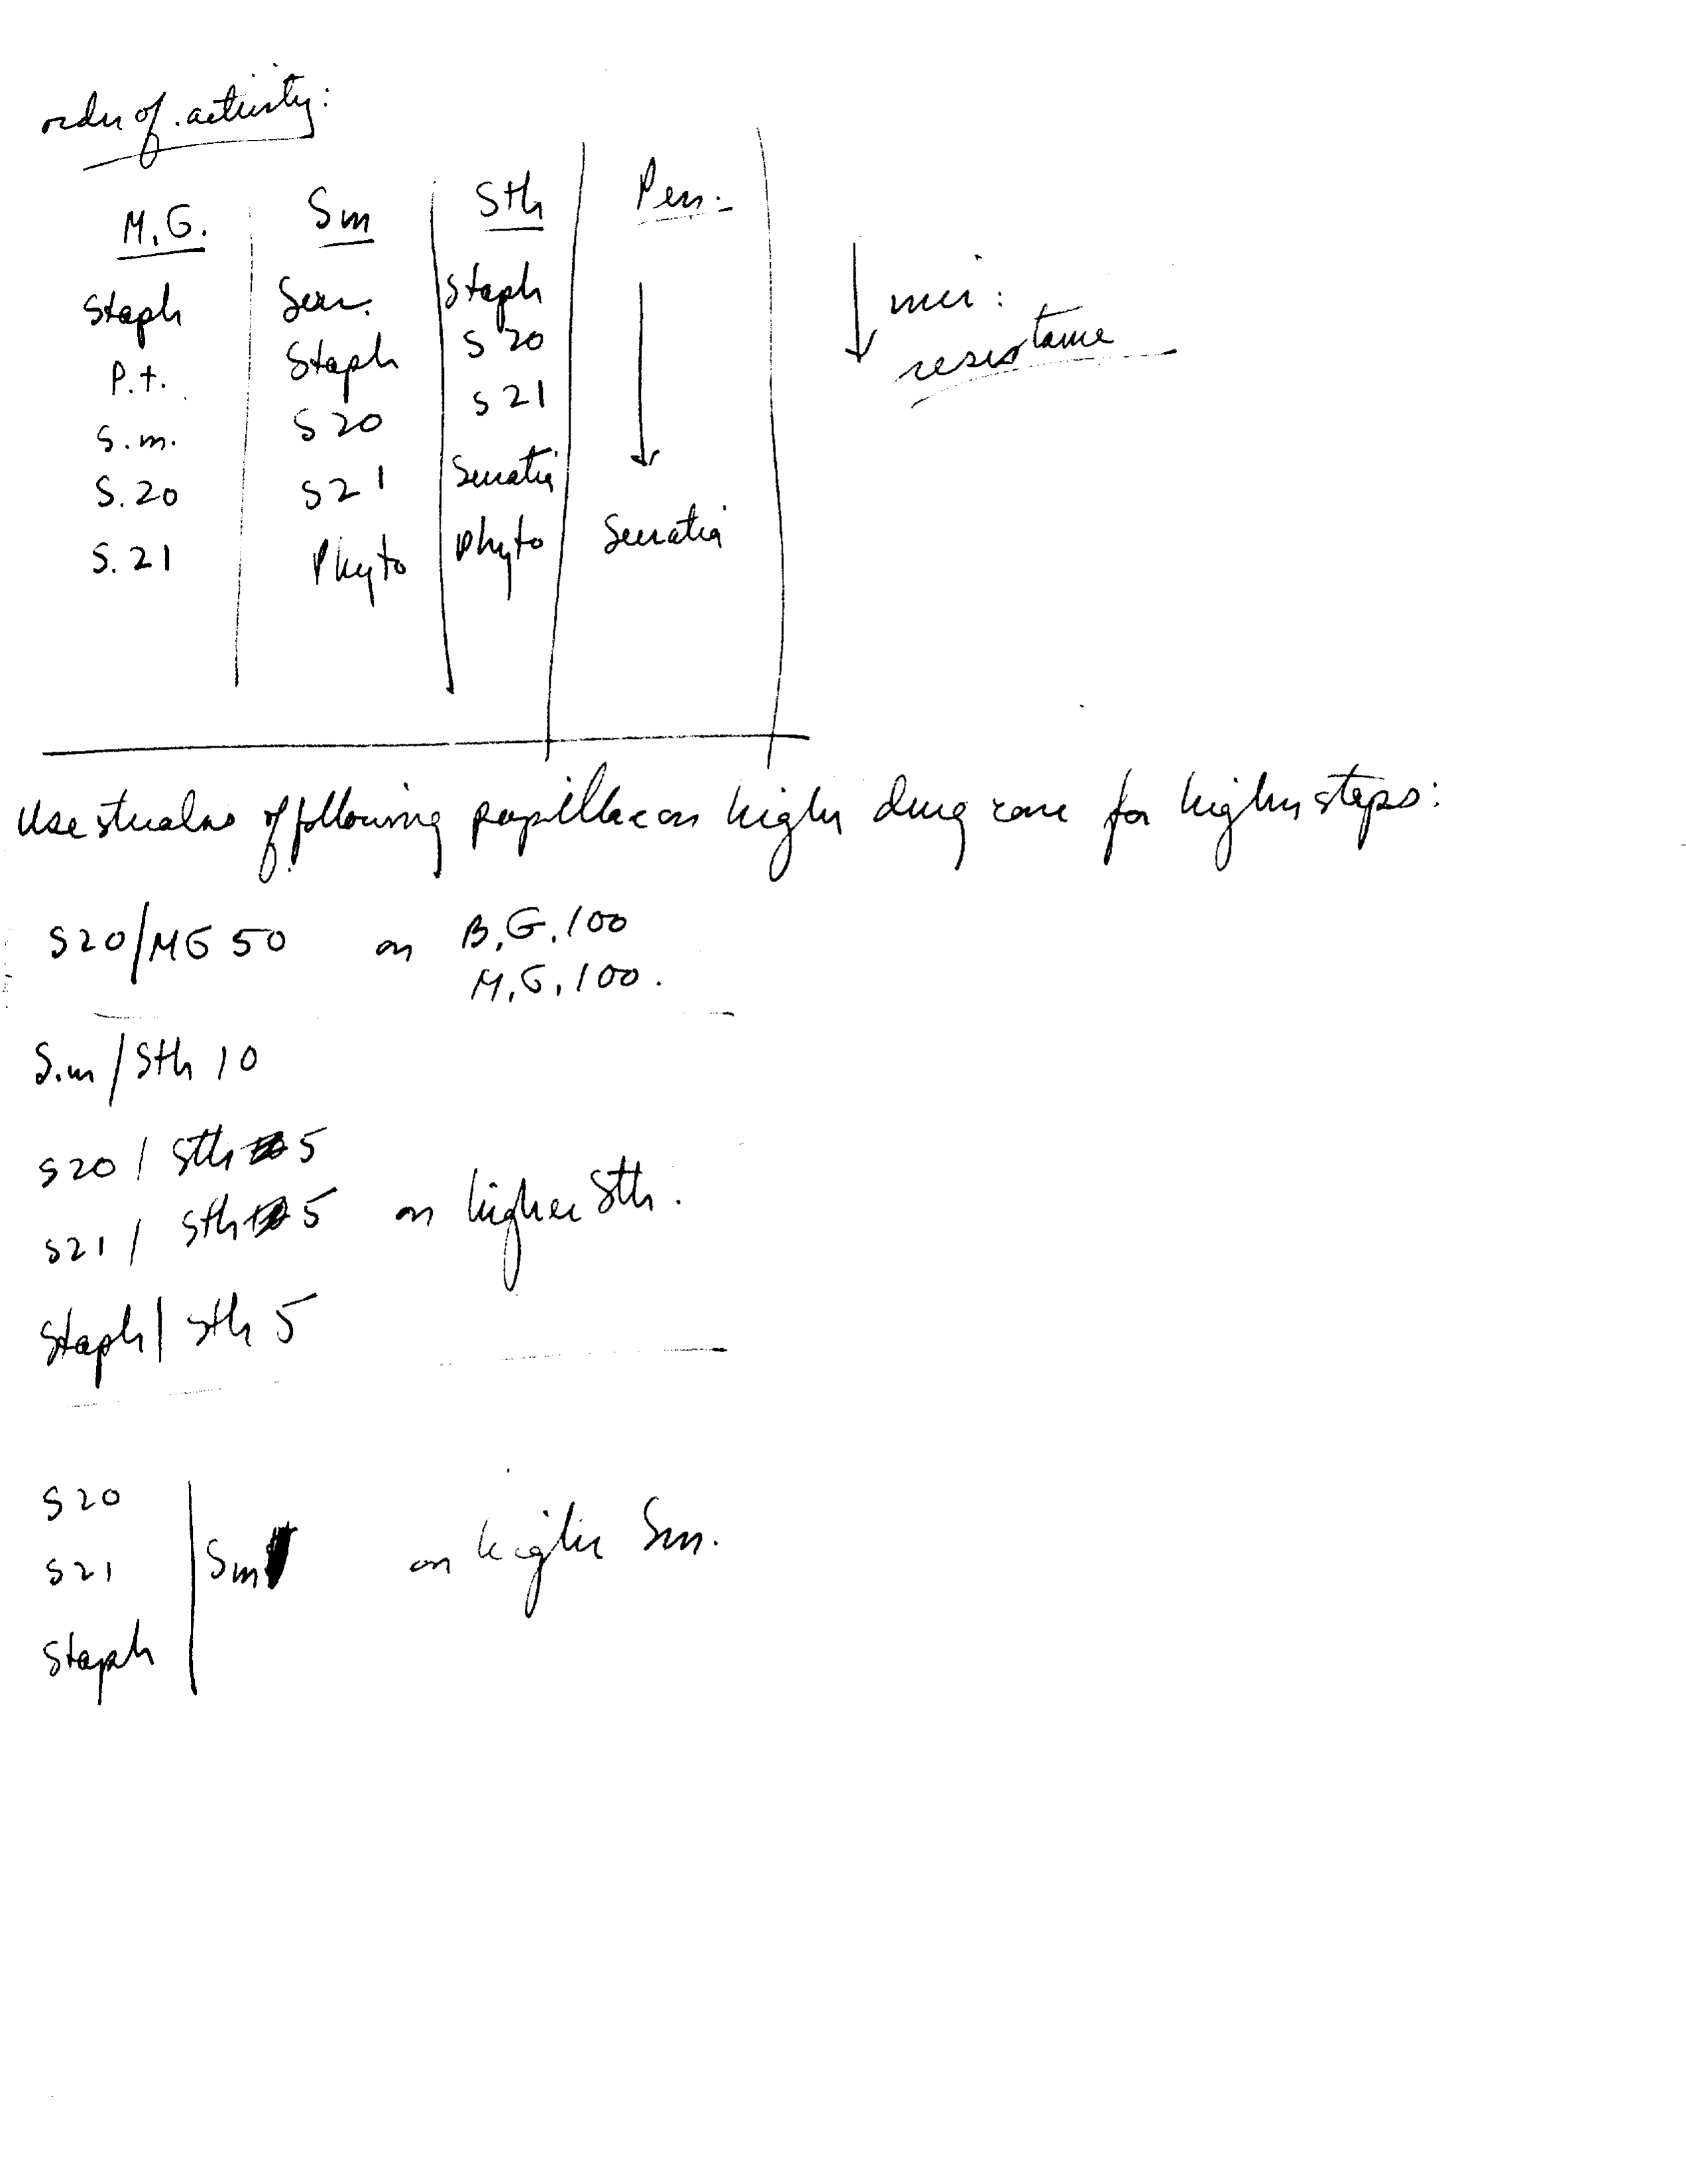 order of activity:
M.G. Sm Sth Pen.
Staph Serr. Staph
P.t. Staph S20
S.m. S20 S21
S.20 S21 Serratia
S.21 Phyto Phyto Serratia
↓ incr:
resistance
Use streaks of following papillae on higher drug conc for higher steps:
S20/MG 50 on B.G. 100
M.G. 100.
S.m / Sth 10
S20 / Sth 5
S21 / Sth 5 on higher Sth.
Staph / Sth 5
S20
S21 Sm on higher Sm.
Staph